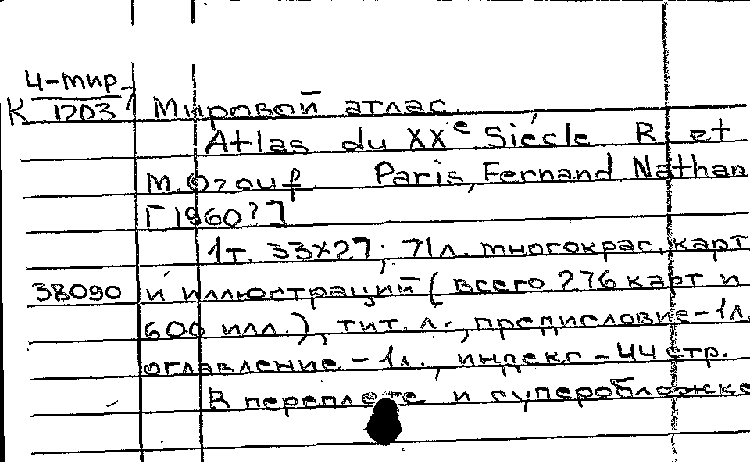 4-мир
К 1703/7 Мировой атлас.
Atlas du XXe Siécle R et
M. Ozouf Paris, Fernand Nathan
[1960?]
1т. 33x27; 71л. многокрас. карт
38090 и иллюстраций (всего 276 карт и
600 илл.), тит. л., предисловие-1л.
оглавление-1л., индекс-44 стр.
В переплете и суперобложке